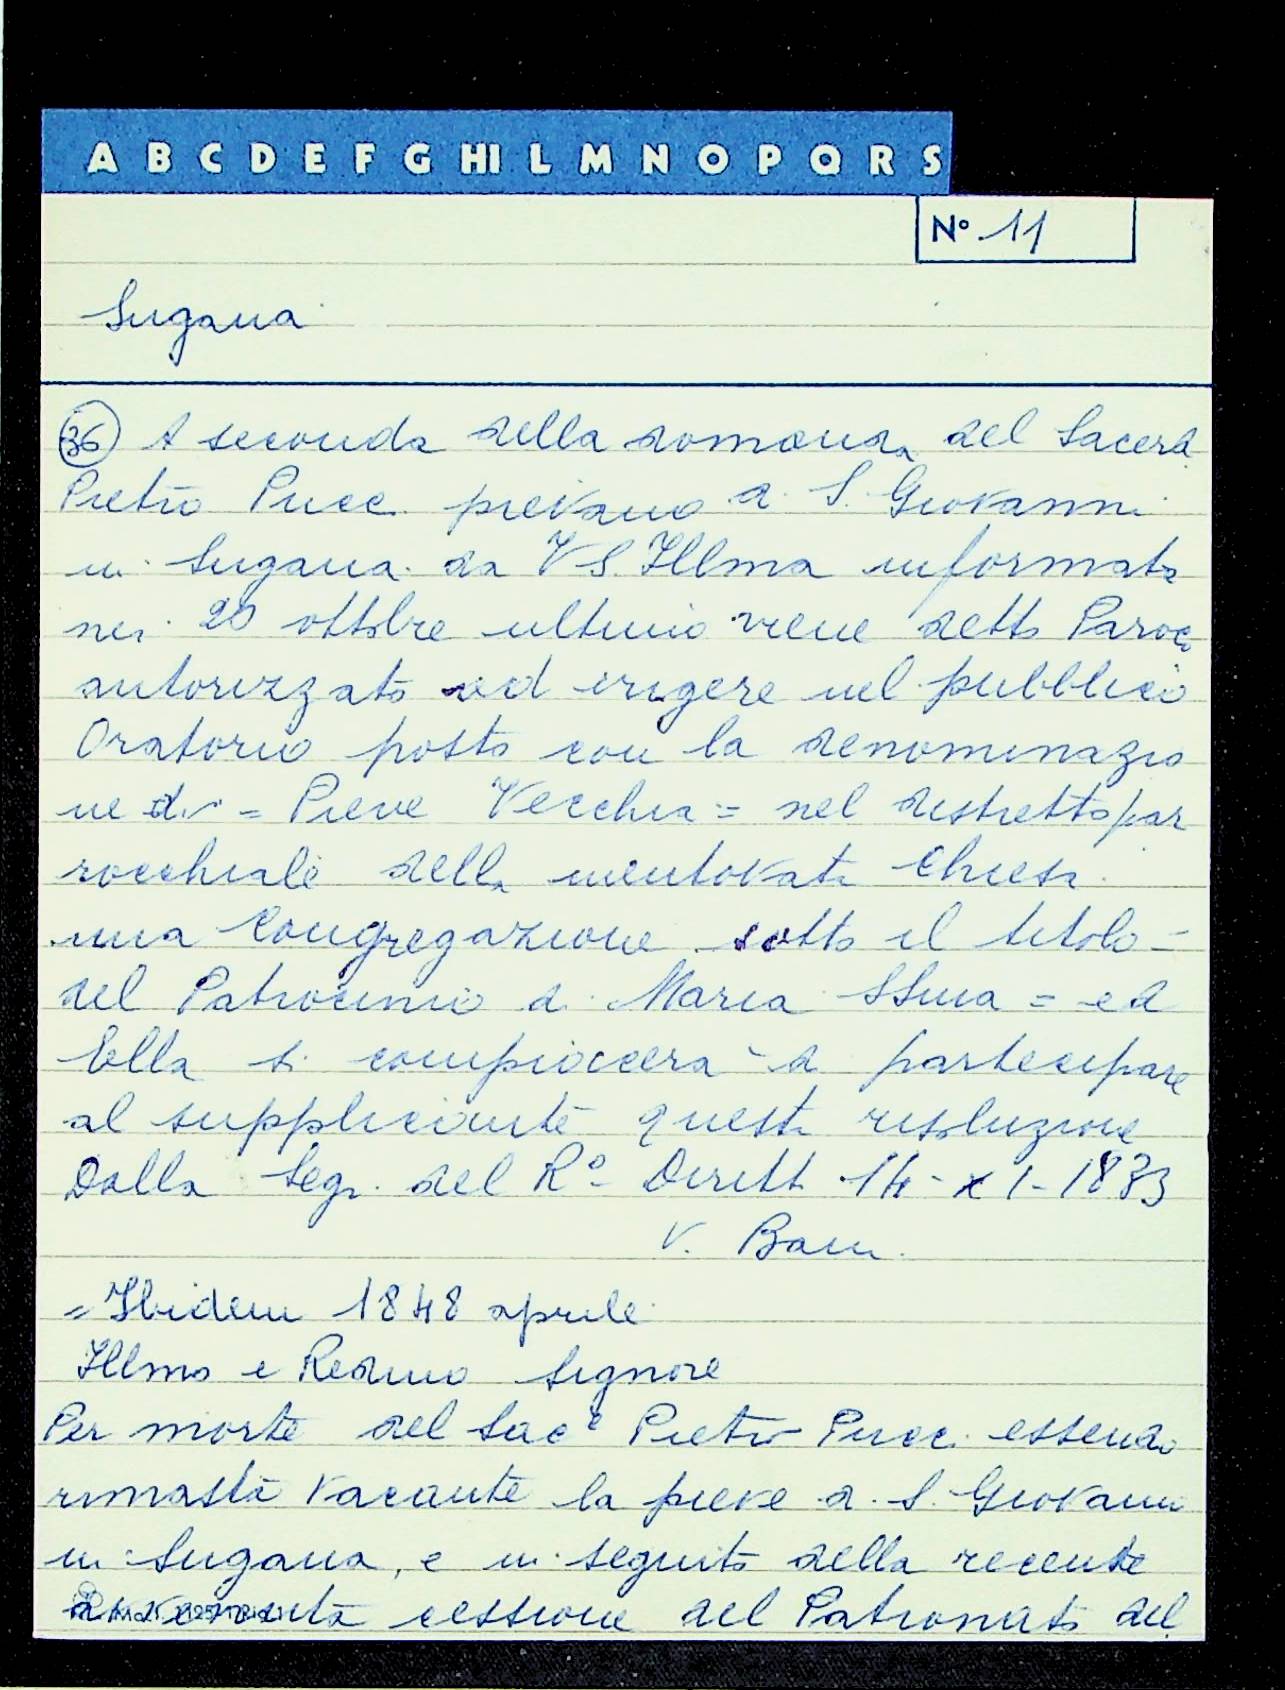 A B C D E F G HI L M N O P Q R S
N° 11
Sugana
36 A seconda della domanda del Sacerd
Pietro Pucci pievano di S. Giovanni
in Sugana da V S. Illma informata
nei 20 ottobre ultimo viene detto Paroco
autorizzato ad erigere nel pubblico
Oratorio posto con la denominazio
ne di = Pieve Vecchia = nel distretto par
rocchiale della mentovata Chiesa
una Congregazione sotto il titolo =
del Patrocinio di Maria SSma = ed
Ella si compiacerà di partecipare
al supplicante questa risoluzione
Dalla Segr. del R° Diritt 14 - XI - 1833
V. Bani
= Ibidem 1848 aprile
Illmo e Redmo Signore
Per morte del Sac e Pietro Pucci essendo
rimasta vacante la pieve di S. Giovanni
in Sugana, e in seguito della recente
avvenuta cessione del Patronato del